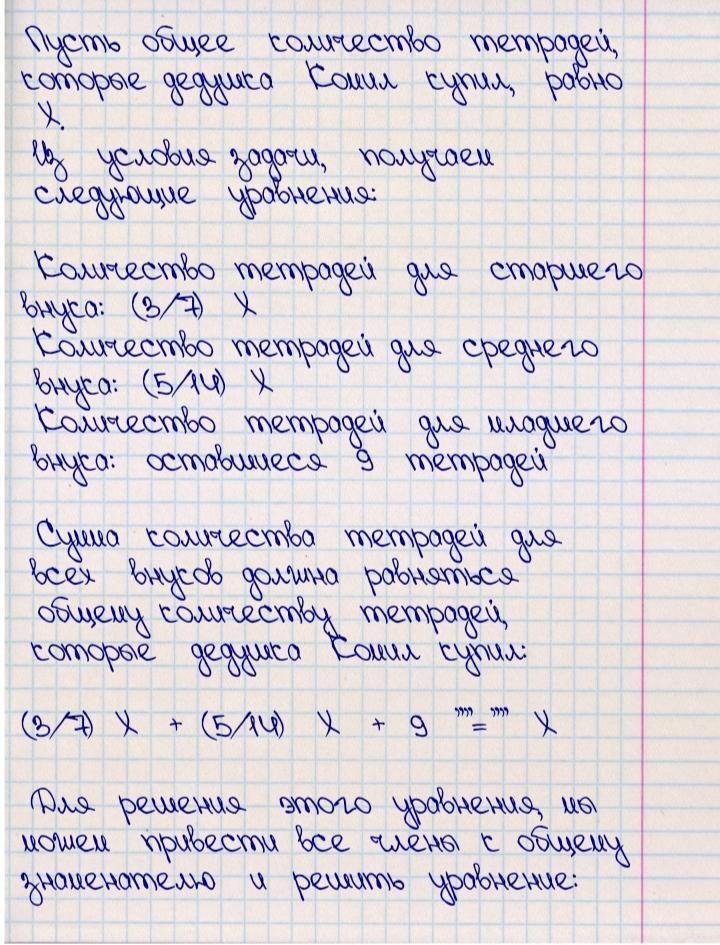 Пусть общее количество тетрадей,
которые дедушка Комил купил, равно
X.
Из условия задачи, получаем
следующие уравнения:
Количество тетрадей для старшего
внука: (3/7) X
Количество тетрадей для среднего
внука: (5/14) X
Количество тетрадей для младшего
внука: оставшиеся 9 тетрадей
Сумма количества тетрадей для
всех внуков должна равняться
общему количеству тетрадей,
которые дедушка Комил купил:
(3/7) X + (5/14) X + 9 """=""" X
Для решения этого уравнения, мы
можем привести все члены к общему
знаменателю и решить уравнение: